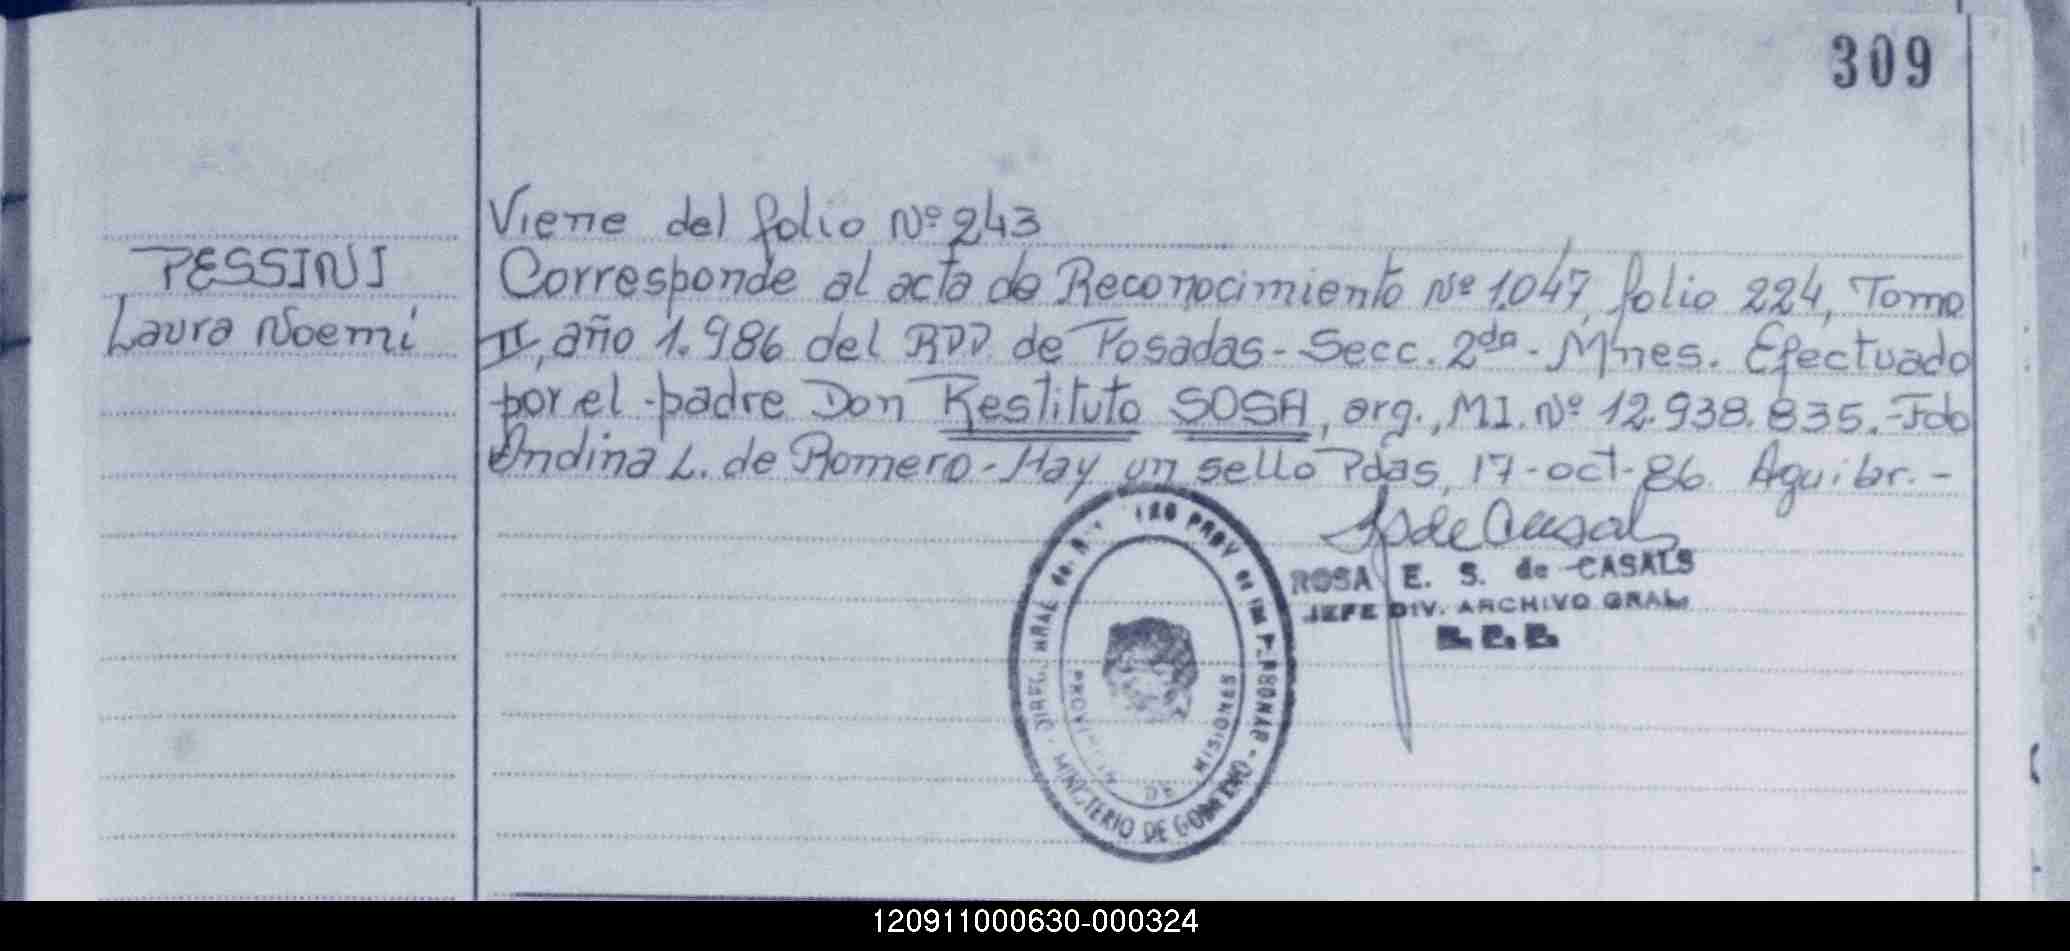 309
Viene del folio Nº 243
PESSINI
Laura Noemí
Corresponde al acta de Reconocimiento Nº 1.047, folio 224, Tomo
II, año 1.986 del RPP de Posadas - Secc. 2da - Mnes. Efectuado
por el padre Don Restituto SOSA, arg., MI. Nº 12.938.835.- Fdo
Ondina L. de Romero - Hay un sello Pdas, 17-oct-86. Aguilar.-
ROSA E. S. de CASALS
JEFE DIV. ARCHIVO GRAL
MINISTERIO DE GOBIERNO
PROVINCIA DE MISIONES
120911000630-000324